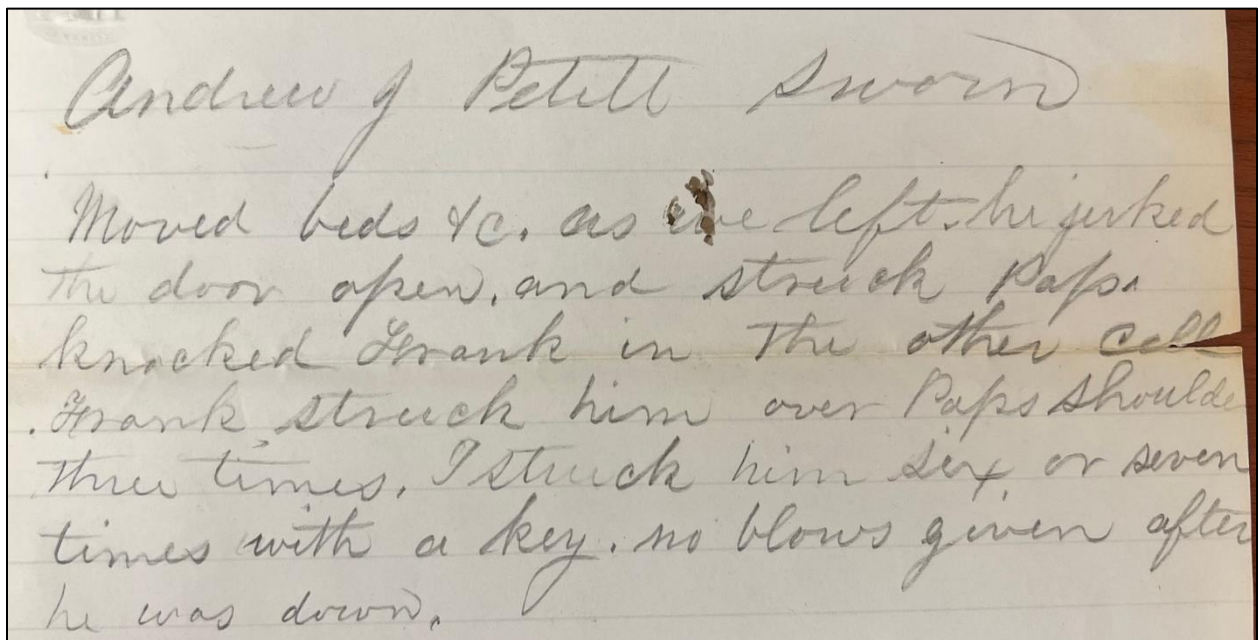 Andrew J Petitt Sworn
Moved beds &c. as we left. he jerked
the door open. and struck Pap.
knocked Frank in the other Cell
. Frank struck him over Paps Shoulde
three times. I struck him six or seven
times with a key. no blows given after
he was down.